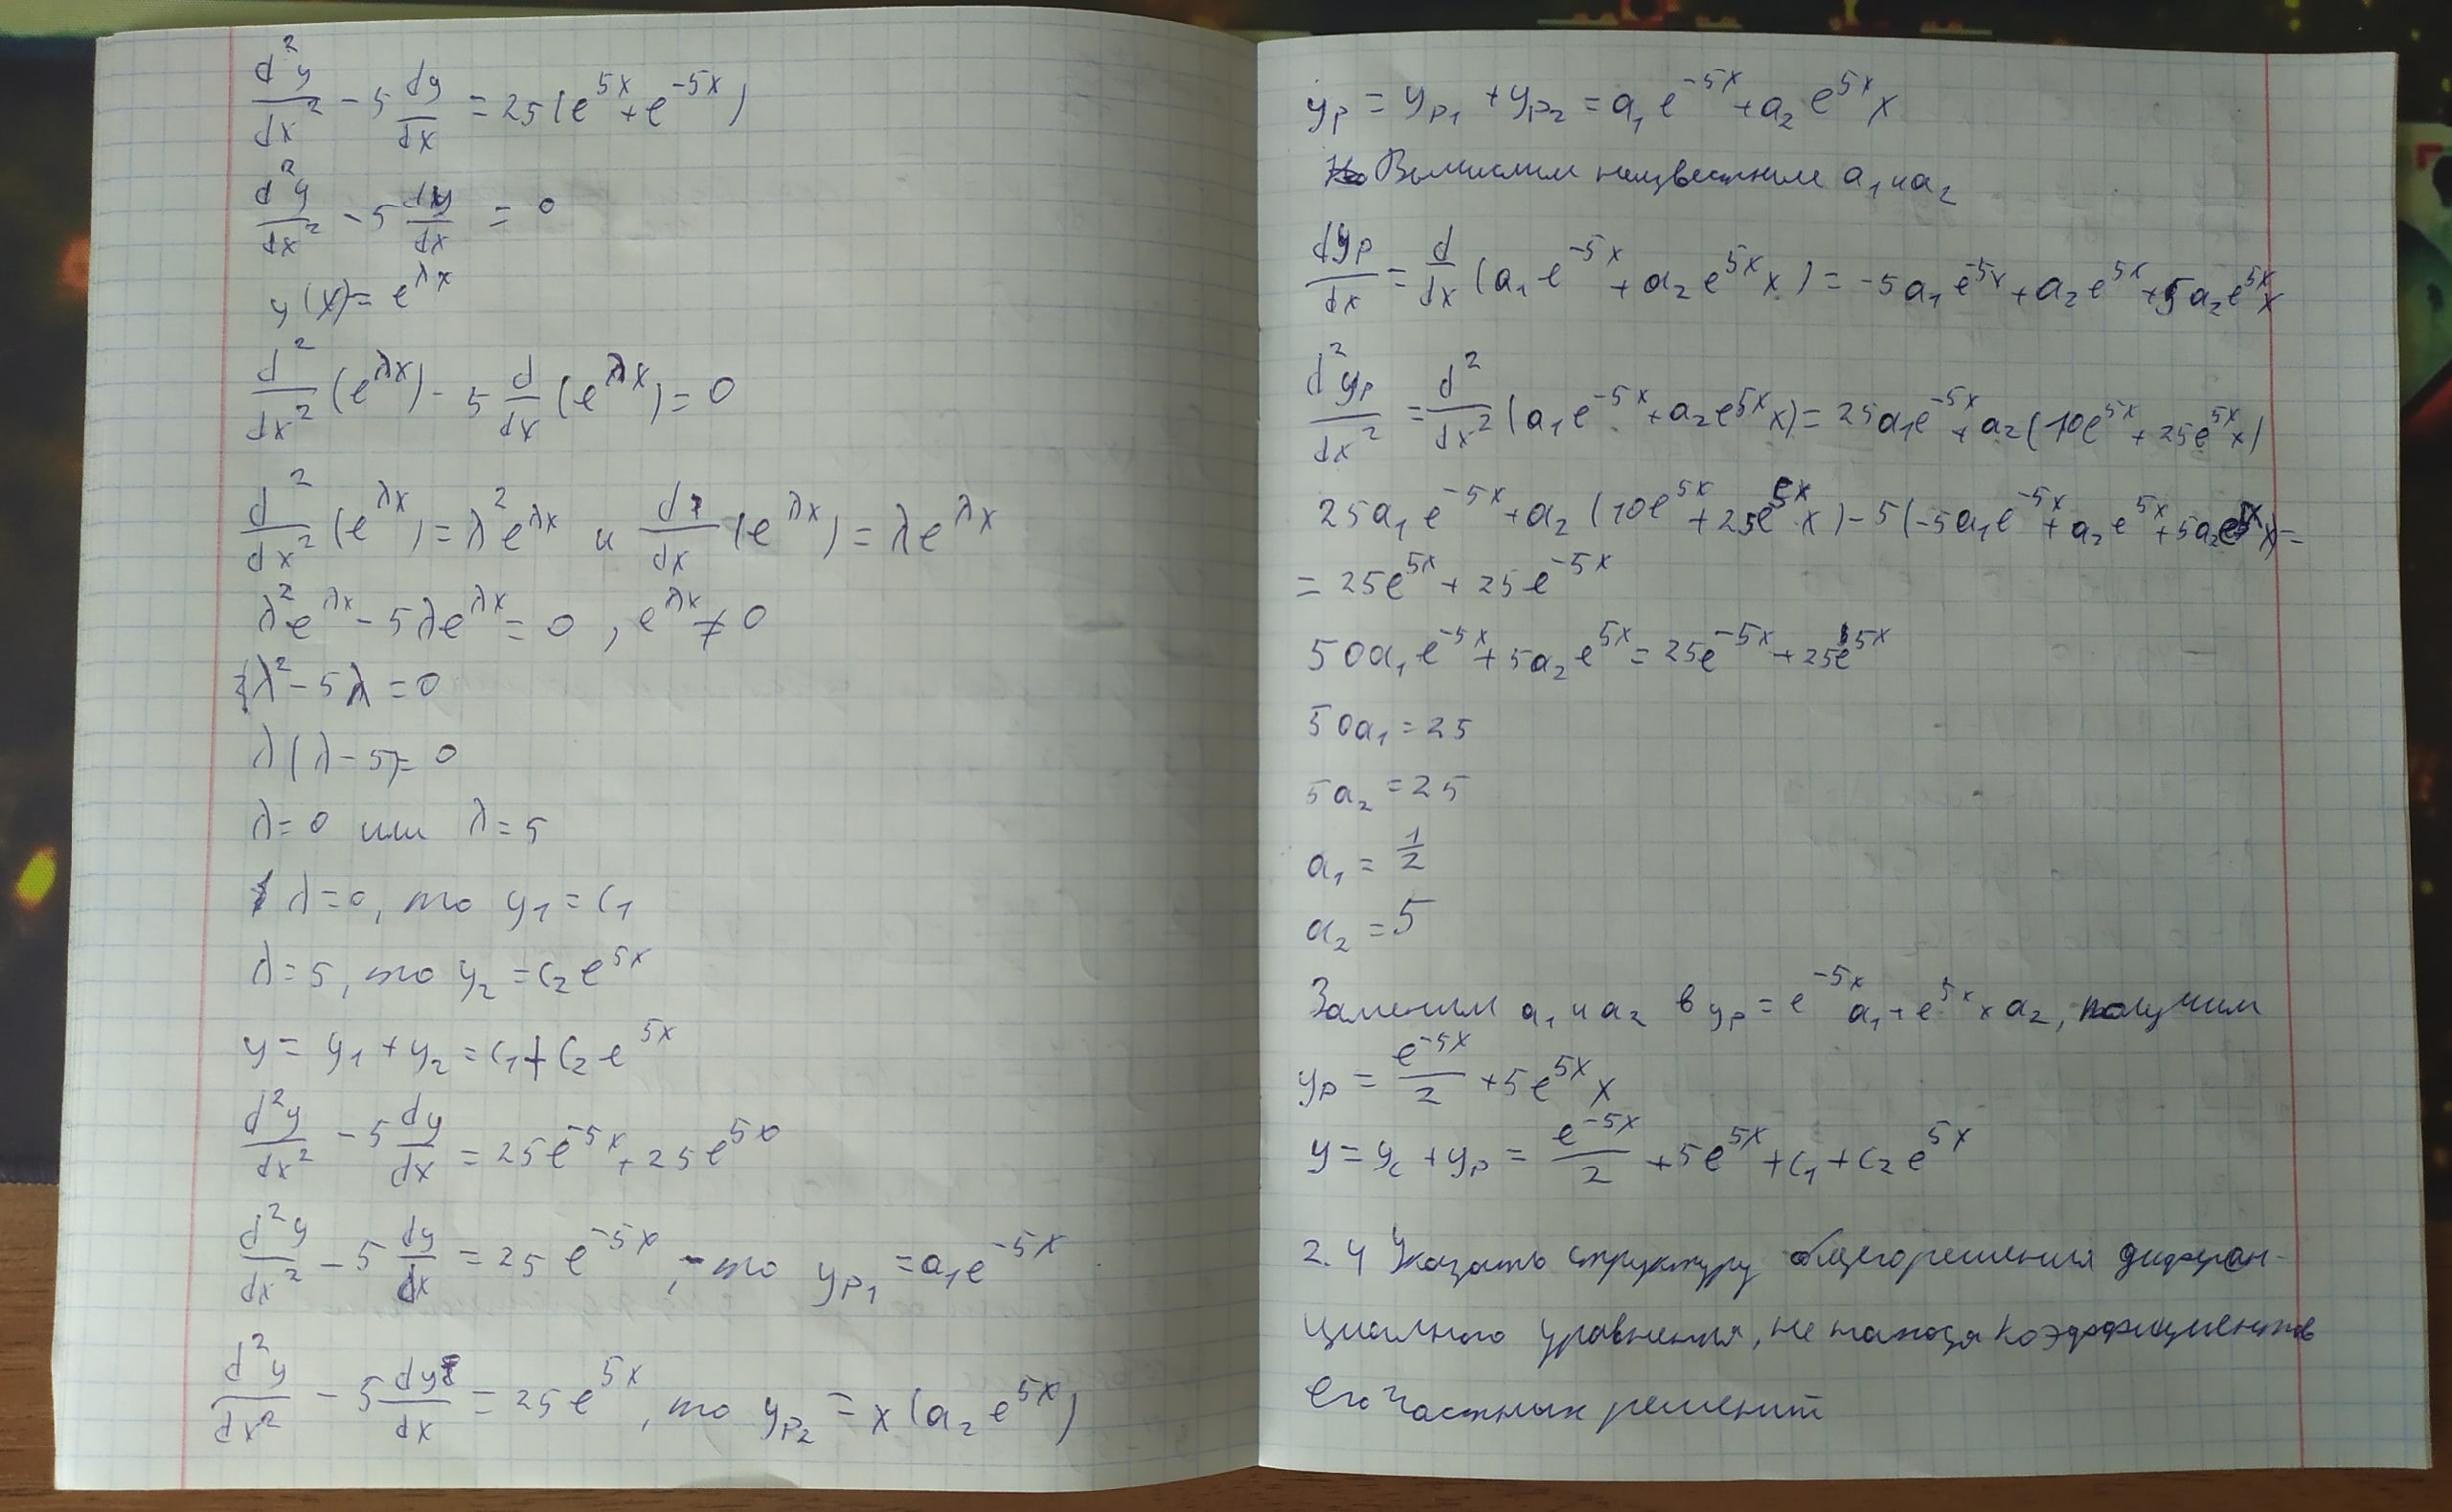 d²y/dx² - 5 dy/dx = 25(e^5x + e^-5x)
d²y/dx² - 5 dy/dx = 0
y(x) = e^λx
d²/dx² (e^λx) - 5 d/dx (e^λx) = 0
d²/dx² (e^λx) = λ²e^λx и d/dx (e^λx) = λe^λx
λ²e^λx - 5λe^λx = 0, e^λx ≠ 0
λ² - 5λ = 0
λ(λ - 5) = 0
λ = 0 или λ = 5
λ = 0, то y₁ = C₁
λ = 5, то y₂ = C₂e^5x
y = y₁ + y₂ = C₁ + C₂e^5x
d²y/dx² - 5 dy/dx = 25e^-5x + 25e^5x
d²y/dx² - 5 dy/dx = 25e^-5x, - то y_p₁ = a₁e^-5x
d²y/dx² - 5 dy/dx = 25e^5x, то y_p₂ = x(a₂e^5x)
y_p = y_p₁ + y_p₂ = a₁e^-5x + a₂e^5x x
Вычислим неизвестные a₁ и a₂
dy_p/dx = d/dx (a₁e^-5x + a₂e^5x x) = -5a₁e^-5x + a₂e^5x + 5a₂e^5x x
d²y_p/dx² = d²/dx² (a₁e^-5x + a₂e^5x x) = 25a₁e^-5x + a₂(10e^5x + 25e^5x x)
25a₁e^-5x + a₂(10e^5x + 25e^5x x) - 5(-5a₁e^-5x + a₂e^5x + 5a₂e^5x x) =
= 25e^5x + 25e^-5x
50a₁e^-5x + 5a₂e^5x = 25e^-5x + 25e^5x
50a₁ = 25
5a₂ = 25
a₁ = 1/2
a₂ = 5
Заменим a₁ и a₂ в y_p = e^-5x a₁ + e^5x x a₂, получим
y_p = e^-5x/2 + 5e^5x x
y = y_c + y_p = e^-5x/2 + 5e^5x + C₁ + C₂e^5x
2.4 Указать структуру общего решения диферен-
циального уравнения, не находя коэффициентов
его частных решений